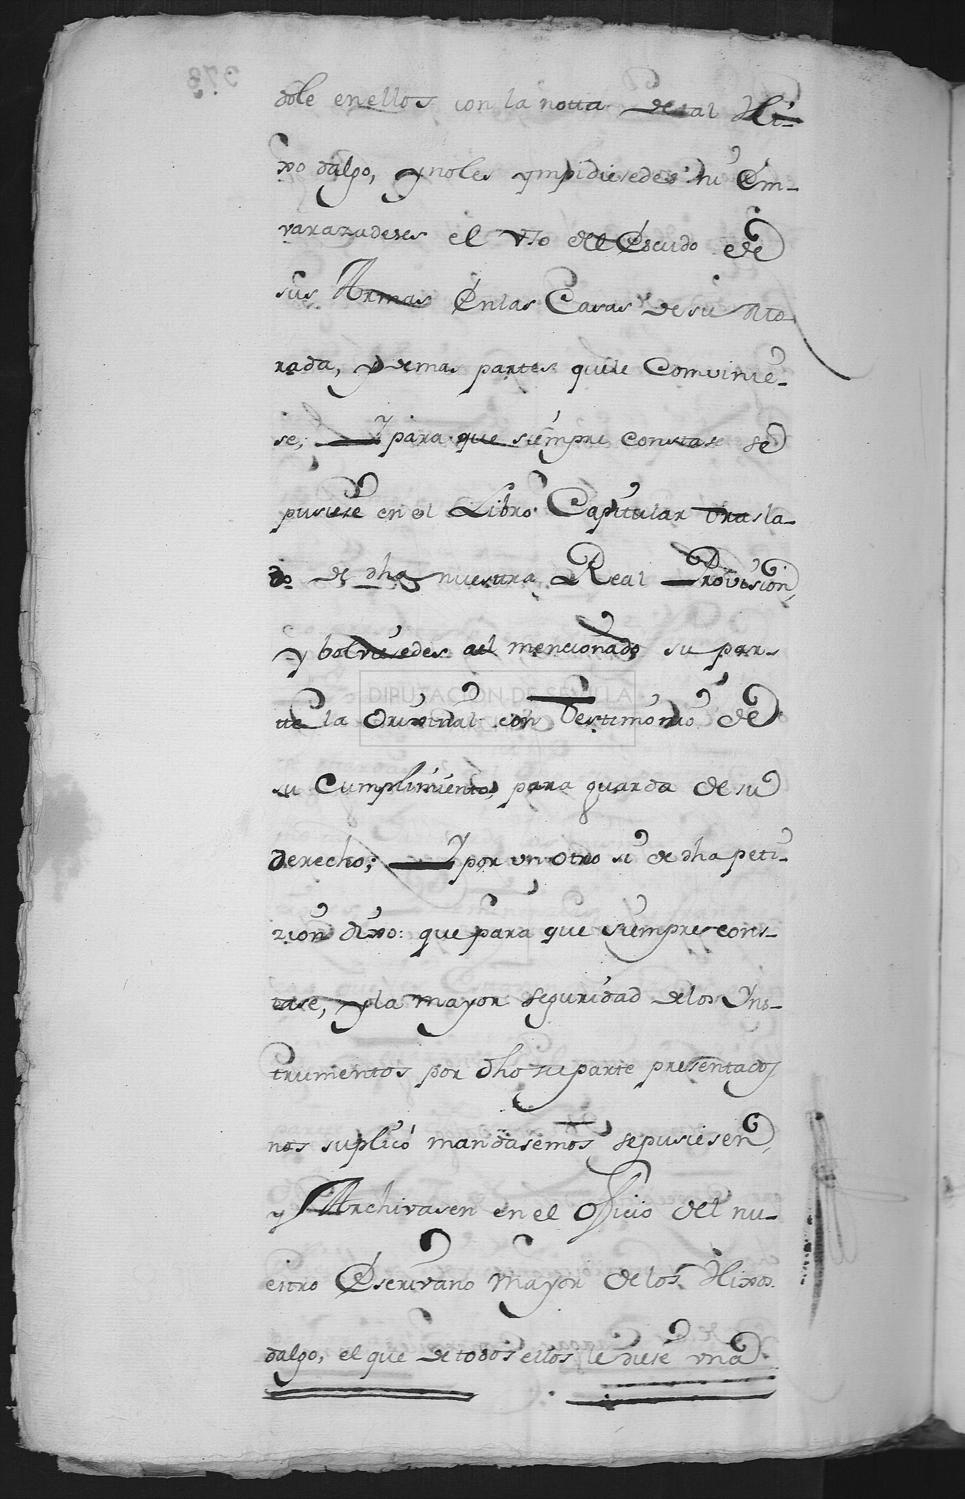 dole enellos con la notta de tal Hi-
xo dalgo, y noles ympidiesedes ni Em-
varazadeses el vso del Escudo de
sus Armas Enlas Casas de su Mo
rada, y demas partes quele Comvinie-
se; Y para que siempre constase se
pusiese en el Libro Capitular trasla-
do de dha nuestra Real Provision,
y bolviesedes al mencionado su par-
te la Original con testimonio de
su Cumplimiento, para guarda de su
derecho; Y por un otro si de dha peti-
zion dixo: que para que siempre cons-
tase, y la mayor seguridad delos Yns-
trumentos por dho su parte presentados
nos suplicó mandasemos sepusiesen,
y Archivasen en el Oficio del nu-
estro Escrivano Mayor delos Hixos
dalgo, el que de todos ellos le diese una
DIPUTACION DE SEVILLA